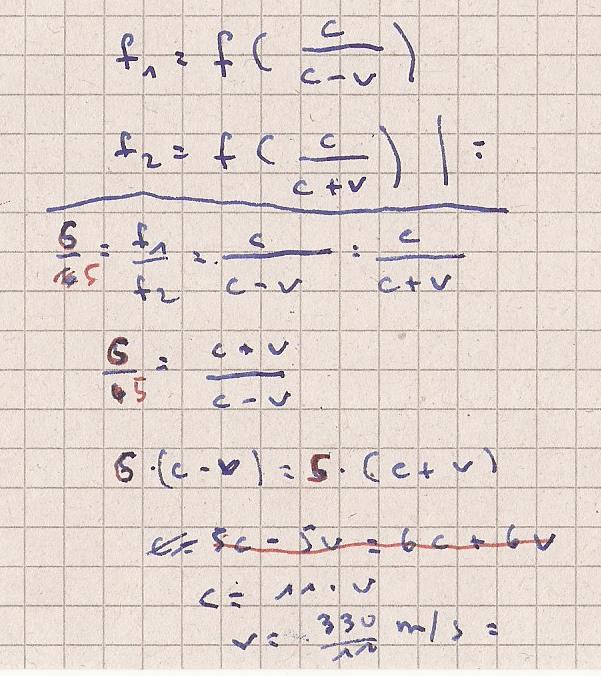 f₁ = f ( c / (c - v) )
f₂ = f ( c / (c + v) ) | :
6/5 = f₁/f₂ = c/(c - v) : c/(c + v)
6/5 = (c + v)/(c - v)
6 · (c - v) = 5 · (c + v)
5c - 5v = 6c + 6v
c = 11 · v
v = 330/11 m/s =